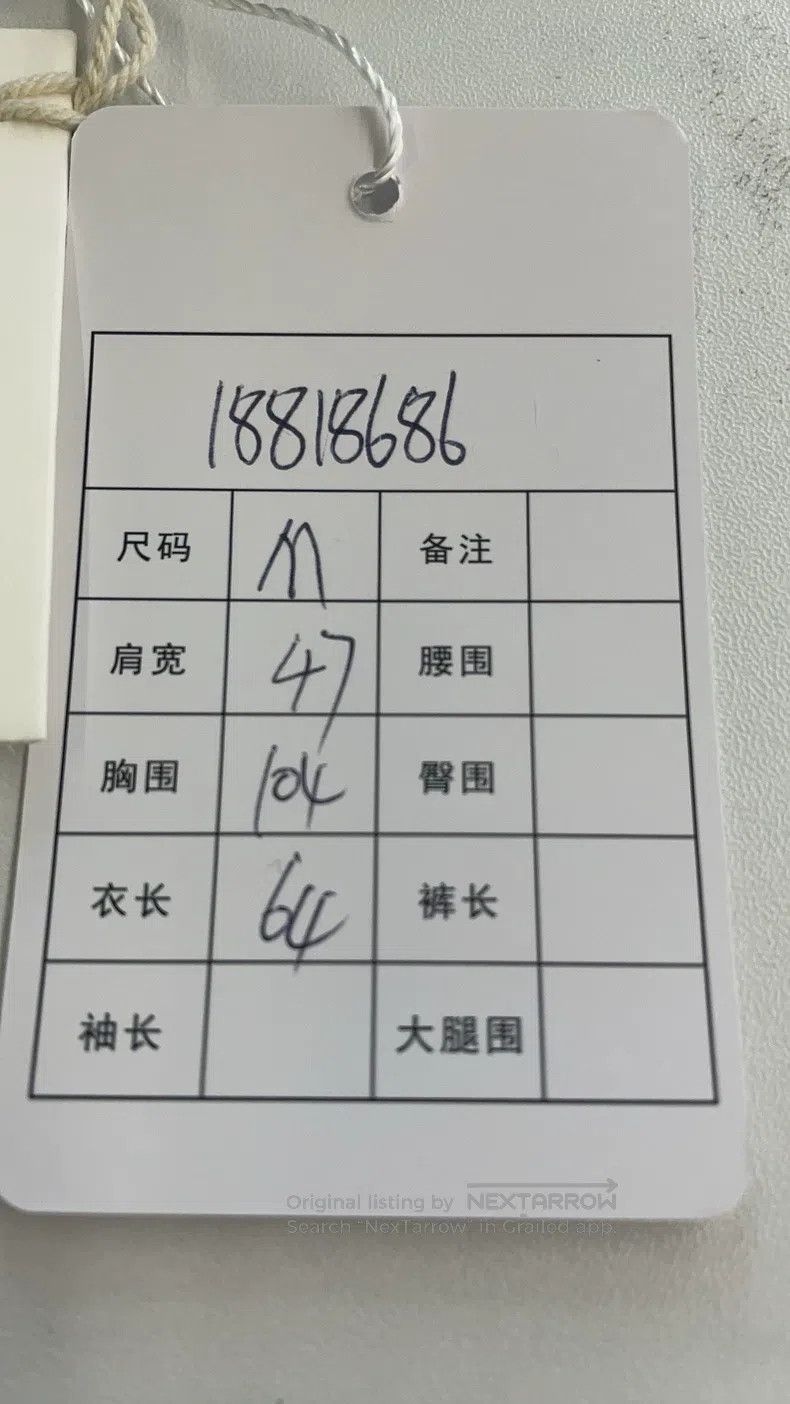 18818686
尺码 M 备注
肩宽 47 腰围
胸围 104 臀围
衣长 64 裤长
袖长 大腿围
Original listing by NEXTARROW
Search "NexTarrow" in Grailed app.